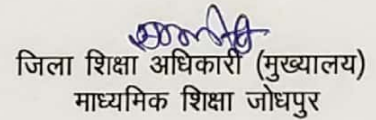 जिला शिक्षा अधिकारी (मुख्यालय)
माध्यमिक शिक्षा जोधपुर